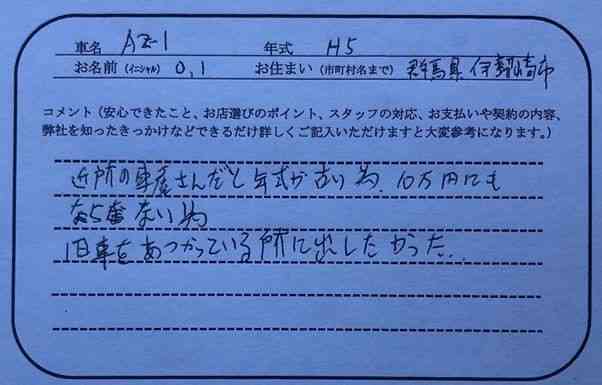 車名 AZ-1 年式 H5
お名前（イニシャル） O,I お住まい（市町村名まで） 群馬県 伊勢崎市
コメント（安心できたこと、お店選びのポイント、スタッフの対応、お支払いや契約の内容、
弊社を知ったきっかけなどできるだけ詳しくご記入いただけますと大変参考になります。）
近所の車屋さんだと年式が古い為、10万円にも
なら ない為
旧車をあつかっている所に出したかった..